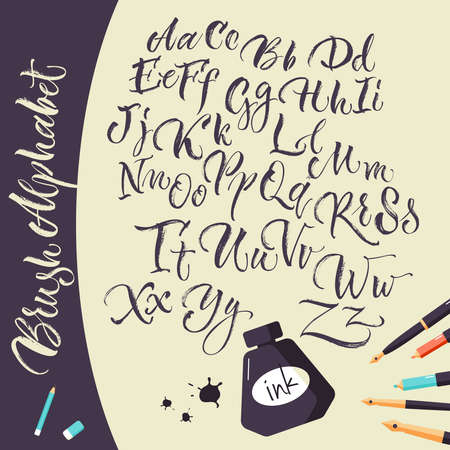 Brush Alphabet
Aa Cc Bb Dd
Ee Ff Gg Hh Ii
Jj Kk Ll Mm
Nn Oo Pp Qq Rr Ss
Tt Uu Vv Ww
Xx Yy Zz
ink